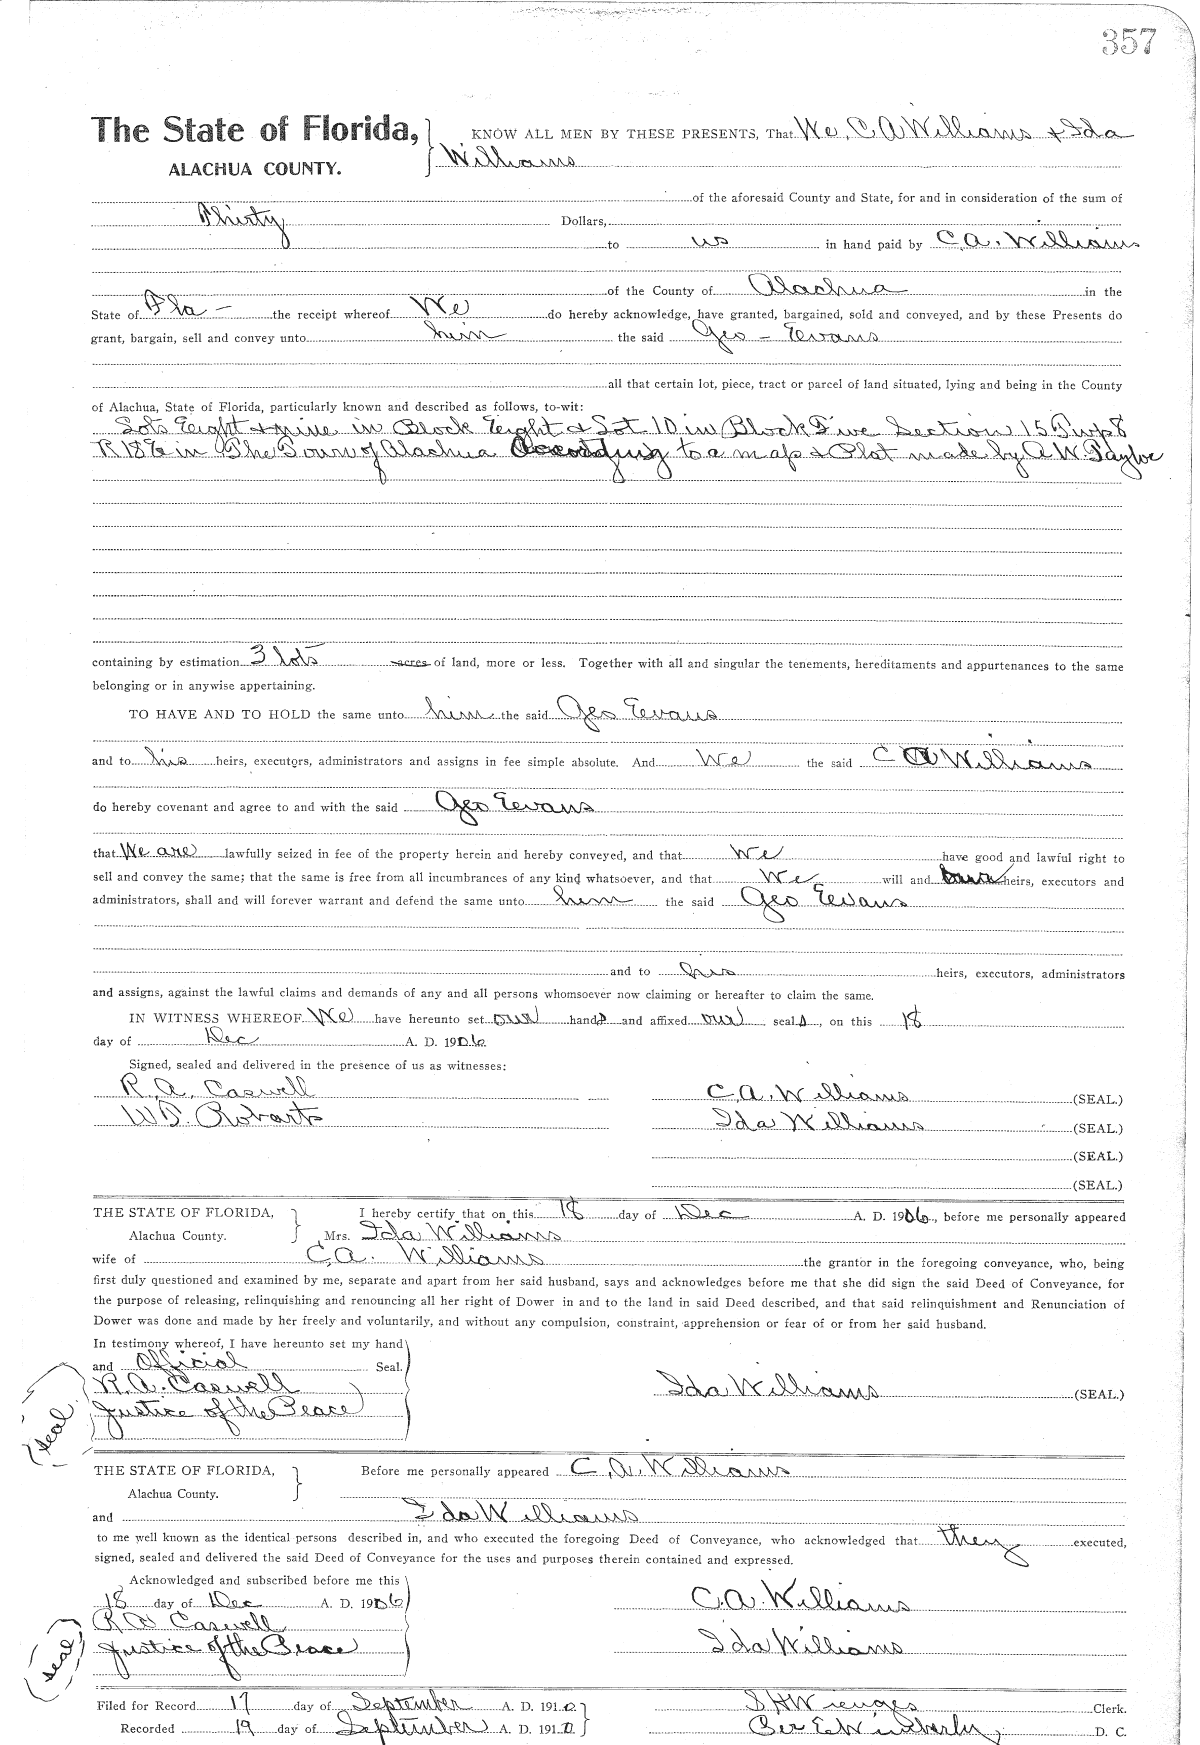 357
The State of Florida, KNOW ALL MEN BY THESE PRESENTS, That We, C A Williams & Ida
ALACHUA COUNTY. Williams
of the aforesaid County and State, for and in consideration of the sum of
Thirty Dollars,
to us in hand paid by C.A. Williams
of the County of Alachua in the
State of Fla - the receipt whereof We do hereby acknowledge, have granted, bargained, sold and conveyed, and by these Presents do
grant, bargain, sell and convey unto him the said Geo - Evans
all that certain lot, piece, tract or parcel of land situated, lying and being in the County
of Alachua, State of Florida, particularly known and described as follows, to-wit:
Lots Eight & nine in Block Eight & Lot 10 in Block Five Section 15 Twp 8
R 18 E in The Town of Alachua According to a map & Plot made by A W. Taylor
containing by estimation 3 lots acres of land, more or less. Together with all and singular the tenements, hereditaments and appurtenances to the same
belonging or in anywise appertaining.
TO HAVE AND TO HOLD the same unto him the said Geo Evans
and to his heirs, executors, administrators and assigns in fee simple absolute. And We the said C A Williams
do hereby covenant and agree to and with the said Geo Evans
that We are lawfully seized in fee of the property herein and hereby conveyed, and that We have good and lawful right to
sell and convey the same; that the same is free from all incumbrances of any kind whatsoever, and that We will and our heirs, executors and
administrators, shall and will forever warrant and defend the same unto him the said Geo Evans
and to his heirs, executors, administrators
and assigns, against the lawful claims and demands of any and all persons whomsoever now claiming or hereafter to claim the same.
IN WITNESS WHEREOF We have hereunto set our hands and affixed our seals, on this 18
day of Dec A. D. 1906
Signed, sealed and delivered in the presence of us as witnesses:
R. A. Caswell C.A. Williams (SEAL.)
W D. Roberts Ida Williams (SEAL.)
(SEAL.)
(SEAL.)
THE STATE OF FLORIDA, I hereby certify that on this 18 day of Dec A. D. 1906, before me personally appeared
Alachua County. Mrs. Ida Williams
wife of C,A. Williams the grantor in the foregoing conveyance, who, being
first duly questioned and examined by me, separate and apart from her said husband, says and acknowledges before me that she did sign the said Deed of Conveyance, for
the purpose of releasing, relinquishing and renouncing all her right of Dower in and to the land in said Deed described, and that said relinquishment and Renunciation of
Dower was done and made by her freely and voluntarily, and without any compulsion, constraint, apprehension or fear of or from her said husband.
In testimony whereof, I have hereunto set my hand
and Official Seal.
R.A. Caswell Ida Williams (SEAL.)
Justice of the Peace
(seal)
THE STATE OF FLORIDA, Before me personally appeared C, A. Williams
Alachua County.
and Ida Williams
to me well known as the identical persons described in, and who executed the foregoing Deed of Conveyance, who acknowledged that they executed,
signed, sealed and delivered the said Deed of Conveyance for the uses and purposes therein contained and expressed.
Acknowledged and subscribed before me this
18 day of Dec A. D. 1906 C.A. Williams
R A Caswell
Justice of the Peace Ida Williams
(seal)
Filed for Record 17 day of September A. D. 1910 S H Wienges Clerk.
Recorded 19 day of September A. D. 1910 Per E Wimberly, D. C.